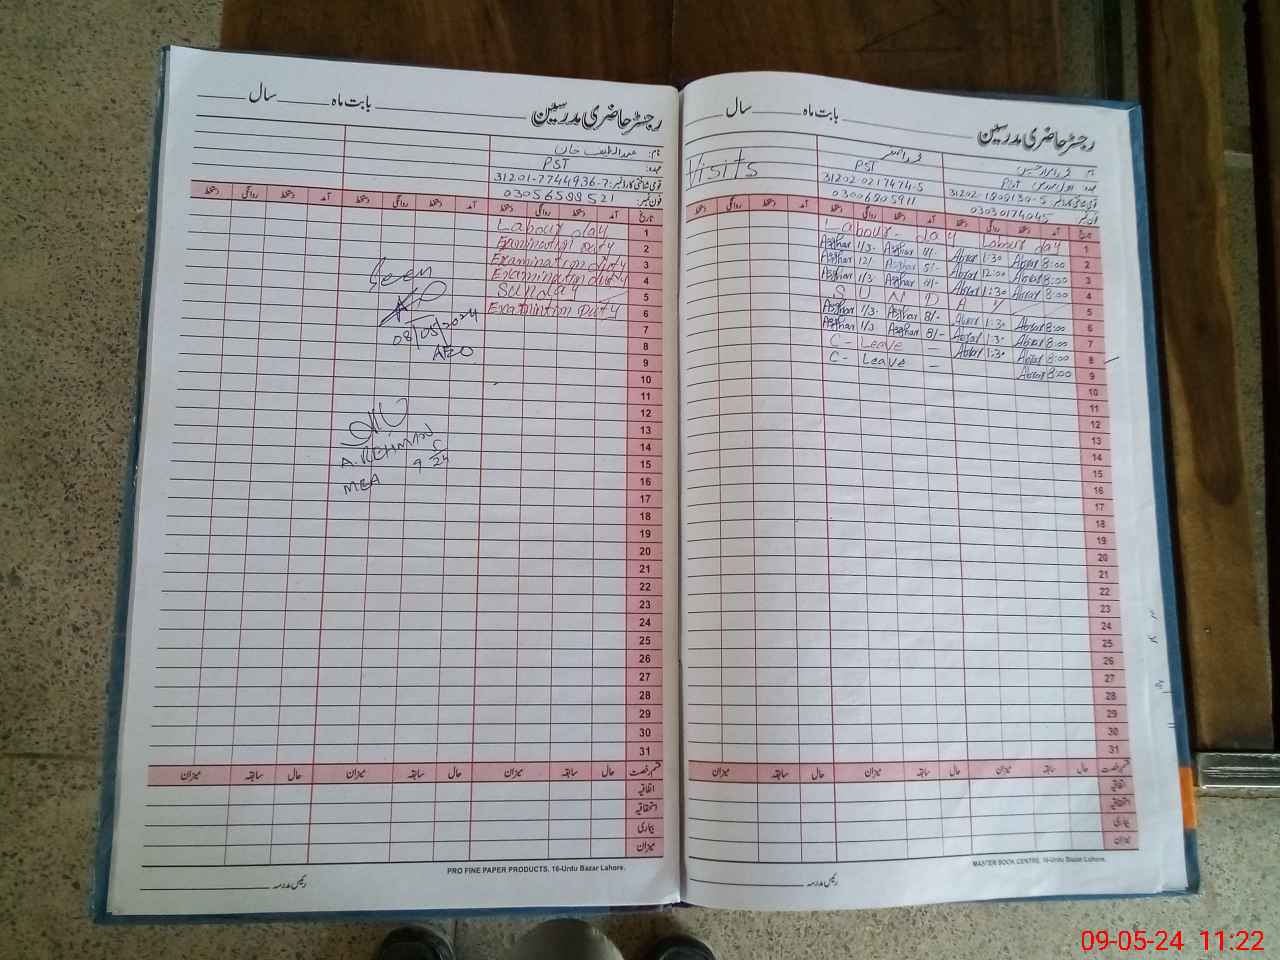 رجسٹر حاضری مدرسین بابت ماہ سال
نام: عبدالطیف خان
عہدہ: PST
قومی شناختی کارڈ نمبر: 31201-7744936-7
فون نمبر: 03056598521
تاریخ آمد دستخط روانگی دستخط آمد دستخط روانگی دستخط آمد دستخط روانگی دستخط
1 Labour day
2 Examination Duty
3 Examination duty
4 Examination duty
5 SUNDAY
6 Examintion Duty
7
8
9
10
11
12
13
14
15
16
17
18
19
20
21
22
23
24
25
26
27
28
29
30
31
Seen
08/05/2024
AEO
A. REHMAN
MEA
9 5/24
قسم رخصت حال سابقہ میزان حال سابقہ میزان حال سابقہ میزان
اتفاقیہ
استحقاقیہ
بیماری
میزان
PRO FINE PAPER PRODUCTS. 16-Urdu Bazar Lahore.
رئیس مدرسہ
رجسٹر حاضری مدرسین بابت ماہ سال
نام
عہدہ PST PST Visits
قومی شناختی کارڈ نمبر 31202-1809130-5 31202-0217474-5
فون نمبر 03030174045 03006805911
تاریخ آمد دستخط روانگی دستخط آمد دستخط روانگی دستخط آمد دستخط روانگی دستخط
1 Labour day Labour day
2 Abrar 8:00 Abrar 1:30 Azhar 8/- Azhar 1/3.
3 Abrar 8:00 Abrar 12:00 Azhar 8/- Azhar 12/-
4 Abrar 8:00 Abrar 1:30 Azhar 8/- Azhar 1/3
5 SUNDAY
6 Abrar 8:00 Abrar 1:30 Azhar 8/- Azhar 1/3.
7 Abrar 8:00 Abrar 1:30 Azhar 8/- Azhar 1/3
8 Abrar 8:00 Abrar 1:30 C - Leave -
9 Abrar 8:00 C - Leave -
10
11
12
13
14
15
16
17
18
19
20
21
22
23
24
25
26
27
28
29
30
31
قسم رخصت حال سابقہ میزان حال سابقہ میزان حال سابقہ میزان
اتفاقیہ
استحقاقیہ
بیماری
میزان
MASTER BOOK CENTRE. 16-Urdu Bazar Lahore.
رئیس مدرسہ
09-05-24 11:22